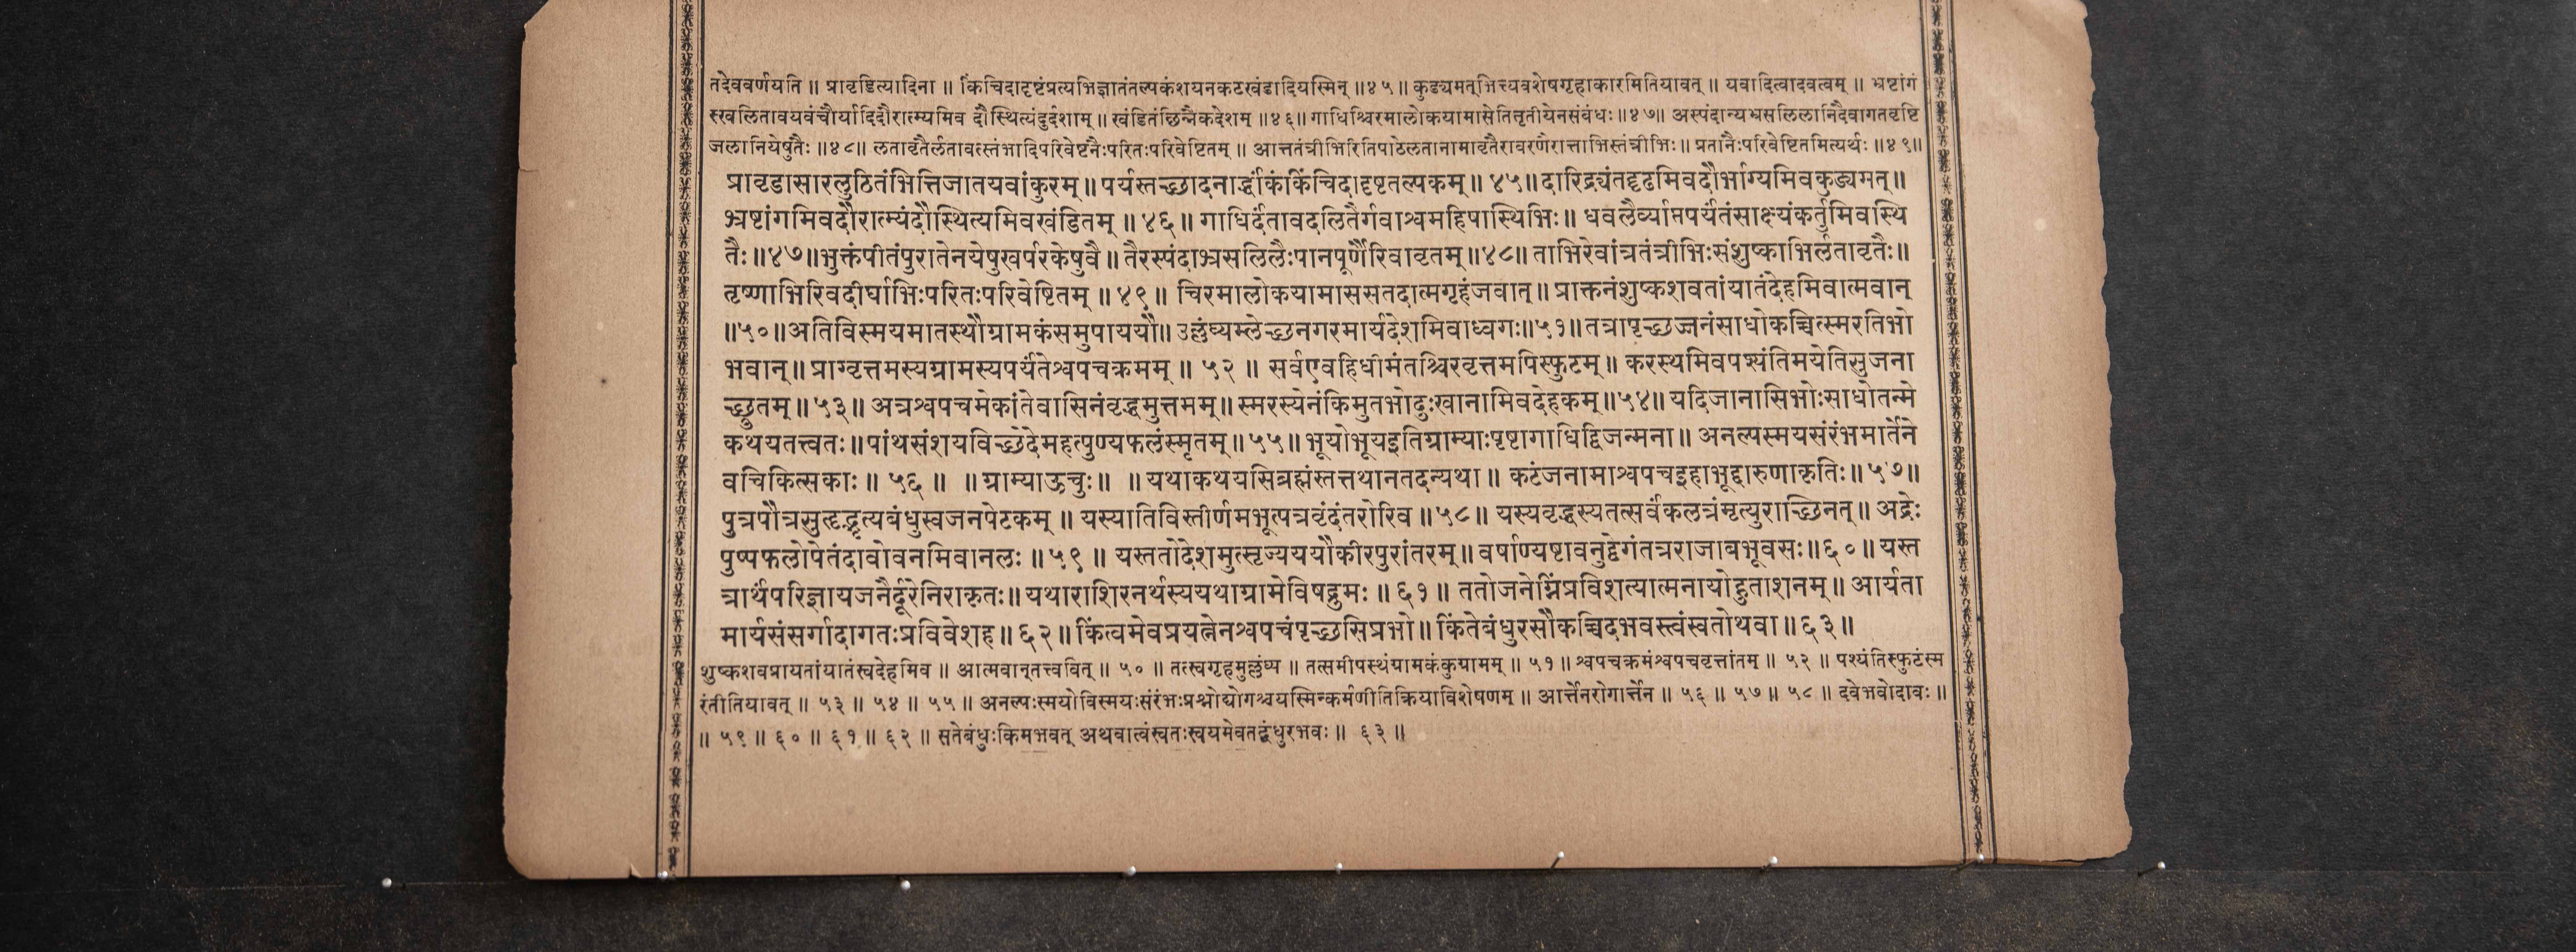 तदेववर्णयति ॥ प्रावृडित्यादिना ॥ किंचिदादृष्टंप्रत्यभिज्ञातंतल्पकंशयनकटखंडादियस्मिन् ॥४५॥ कुड्यमत्भित्त्यवशेषगृहाकारमितियावत् ॥ यवादित्वादवत्वम् ॥ भ्रष्टांगं
स्खलितावयवंचौर्यादिदौरात्म्यमिव दौस्थित्यंदुर्दशाम् ॥ खंडितंछिन्नैकदेशम् ॥४६॥ गाधिश्चिरमालोकयामासेतितृतीयेनसंबंधः ॥४७॥ अस्पंदान्यभ्रसलिलानिदैवागतवृष्टि
जलानियेषुतैः ॥४८॥ लतावृतैर्लतावत्स्तंभादिपरिवेष्टनैःपरितःपरिवेष्टितम् ॥ आत्ततंत्रीभिरितिपाठेलतानामावृतैरावरणैरात्ताभिस्तंत्रीभिः ॥ प्रतानैःपरिवेष्टितमित्यर्थः ॥४९॥
प्रावृडासारलुठितंभित्तिजातयवांकुरम् ॥ पर्यस्तच्छादनार्द्धांकिंकिंचिदादृष्टतल्पकम् ॥ ४५॥ दारिद्र्यंतदृढमिवदौर्भाग्यमिवकुड्यमत् ॥
भ्रष्टांगमिवदौरात्म्यंदौस्थित्यमिवखंडितम् ॥ ४६॥ गाधिर्दंतावदलितैर्गवाश्वमहिषास्थिभिः ॥ धवलैर्व्याप्तपर्यंतंसाक्ष्यंकर्तुमिवस्थि
तैः ॥४७॥ भुक्तंपीतंपुरातेनयेषुखर्परकेषुवै ॥ तैरस्पंदाभ्रसलिलैःपानपूर्णैरिवावृतम् ॥४८॥ ताभिरेवांत्रतंत्रीभिःसंशुष्काभिर्लतावृतैः ॥
तृष्णाभिरिवदीर्घाभिःपरितःपरिवेष्टितम् ॥ ४९॥ चिरमालोकयामाससतदात्मगृहंजवात् ॥ प्राक्तनंशुष्कशवतांयातंदेहमिवात्मवान्
॥५०॥ अतिविस्मयमातस्थौग्रामकंसमुपाययौ ॥ उल्लंघ्यम्लेच्छनगरमार्यदेशमिवाध्वगः ॥५१॥ तत्रापृच्छज्जनंसाधोकच्चित्स्मरतिभो
भवान् ॥ प्राग्वृत्तमस्यग्रामस्यपर्यंतेश्वपचक्रमम् ॥ ५२ ॥ सर्वएवहिधीमंतश्चिरवृत्तमपिस्फुटम् ॥ करस्थमिवपश्यंतिमयेतिसुजना
च्छ्रुतम् ॥ ५३॥ अत्रश्वपचमेकांतेवासिनंवृद्धमुत्तमम् ॥ स्मरस्येनंकिमुतभोदुःखानामिवदेहकम् ॥५४॥ यदिजानासिभोःसाधोतन्मे
कथयतत्त्वतः ॥ पांथसंशयविच्छेदेमहत्पुण्यफलंस्मृतम् ॥ ५५॥ भूयोभूयइतिग्राम्याःपृष्टागाधिद्विजन्मना ॥ अनल्पस्मयसंरंभमार्तेने
वचिकित्सकाः ॥ ५६ ॥ ॥ ग्राम्याऊचुः ॥ ॥ यथाकथयसिब्रह्मंस्तत्तथानतदन्यथा ॥ कटंजनामाश्वपचइहाभूद्दारुणाकृतिः ॥ ५७॥
पुत्रपौत्रसुहृद्भृत्यबंधुस्वजनपेटकम् ॥ यस्यातिविस्तीर्णमभूत्पत्रवृंदंतरोरिव ॥५८॥ यस्यवृद्धस्यतत्सर्वंकलत्रंमृत्युराच्छिनत् ॥ अद्रेः
पुष्पफलोपेतंदावोवनमिवानलः ॥ ५९ ॥ यस्ततोदेशमुत्सृज्यययौकीरपुरांतरम् ॥ वर्षाण्यष्टावनुद्वेगंतत्रराजाबभूवसः ॥६०॥ यस्त
त्रार्थंपरिज्ञायजनैर्दूरेनिराकृतः ॥ यथाराशिरनर्थस्ययथाग्रामेविषद्रुमः ॥ ६१ ॥ ततोजनेग्निंप्रविशत्यात्मनायोहुताशनम् ॥ आर्यता
मार्यसंसर्गादागतःप्रविवेशह ॥ ६२ ॥ किंत्वमेवप्रयत्नेनश्वपचंपृच्छसिप्रभो ॥ किंतेबंधुरसौकच्चिदभवस्त्वंस्वतोथवा ॥ ६३ ॥
शुष्कशवप्रायतांयातंस्वदेहमिव ॥ आत्मवान्तत्त्ववित् ॥ ५० ॥ तत्स्वगृहमुल्लंघ्य ॥ तत्समीपस्थंग्रामकंकुग्रामम् ॥ ५१ ॥ श्वपचक्रमंश्वपचवृत्तांतम् ॥ ५२ ॥ पश्यंतिस्फुटंस्म
रंतीतियावत् ॥ ५३ ॥ ५४ ॥ ५५ ॥ अनल्पःस्मयोविस्मयःसंरंभःप्रश्नोद्योगश्चयस्मिन्कर्मणीतिक्रियाविशेषणम् ॥ आर्त्तेनरोगार्त्तेन ॥ ५६ ॥ ५७ ॥ ५८ ॥ दवेभवोदावः ॥
॥ ५९ ॥ ६० ॥ ६१ ॥ ६२ ॥ सतेबंधुःकिमभवत् अथवात्वंस्वतःस्वयमेवतद्बंधुरभवः ॥ ६३ ॥